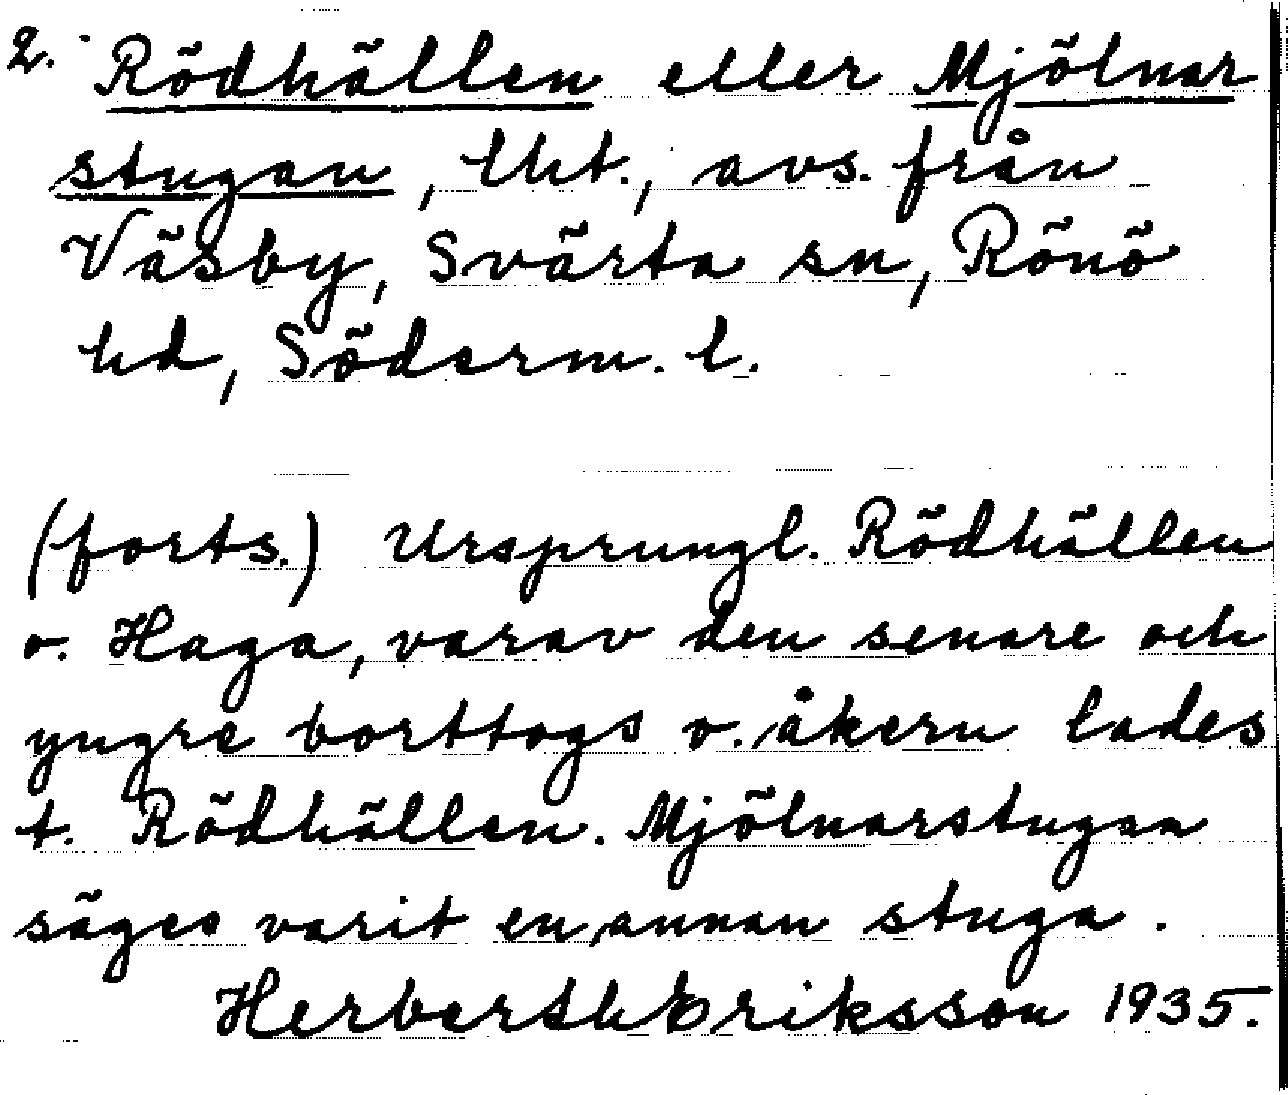 2. Rödhällen eller Mjölnar
stugan, lht., avs. från
Väsby, Svärta sn, Rönö
hd, Söderm. l.
(forts.) Ursprungl. Rödhällen
o. Haga, varav den senare och
yngre borttogs o. åkern lades
t. Rödhällen. Mjölnarstugan
säges varit en annan stuga.
Herberth Eriksson 1935.